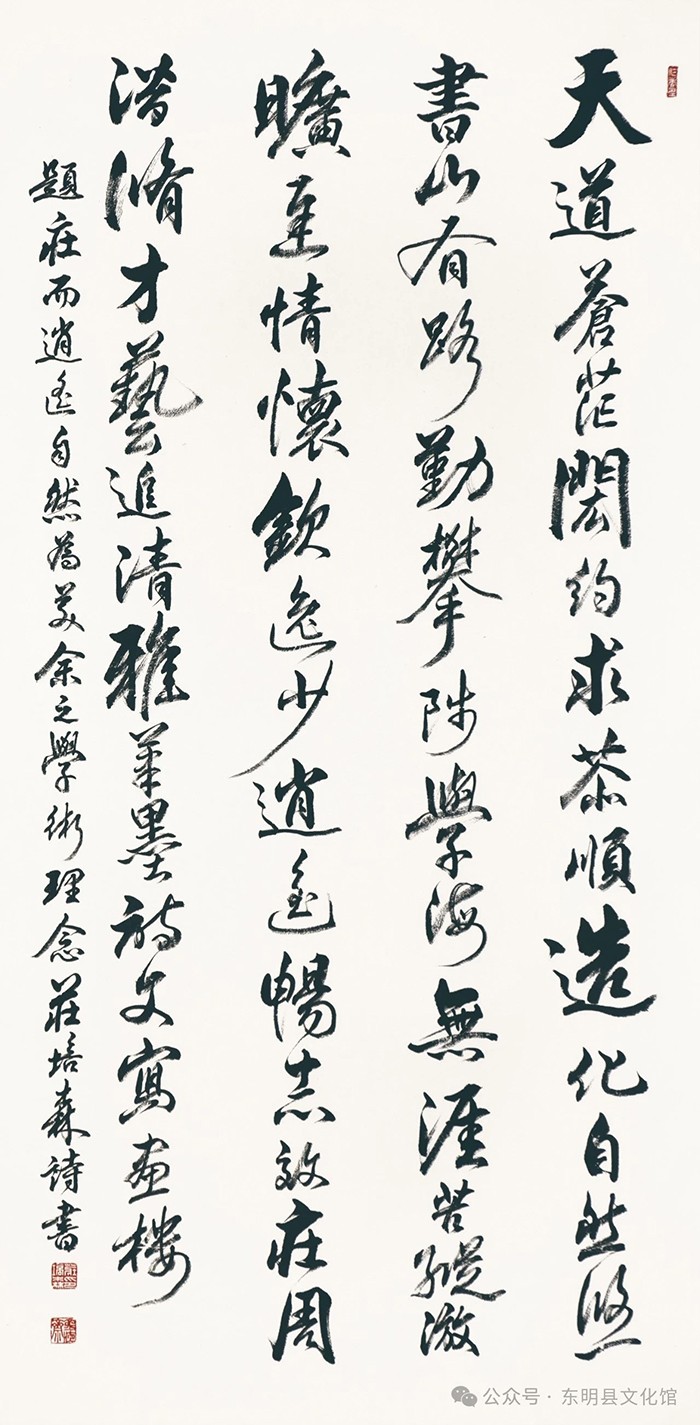 天道蒼茫閎約求恭順造化自然悠
書山有路勤攀陟學海無涯苦縱游
曠達情懷欽逸少逍遙暢志效庄周
潛脩才藝追清雅筆墨詩文寫畫樓
題庄而逍遙自然為美余之學術理念莊培森詩書
公众号·东明县文化馆